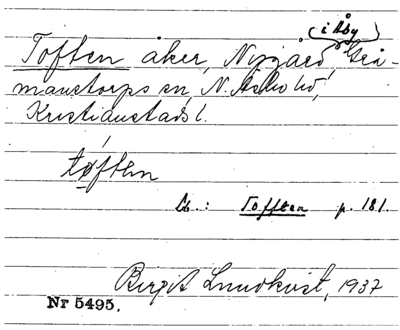 (i Åby)
Toften åker, Nygård Grå-
manstorps sn, N. Åsbo hd,
Kristianstads l.
tøften
Lb.: Tofften p. 181.
Birgit Lundkvist, 1937
Nr 5495.